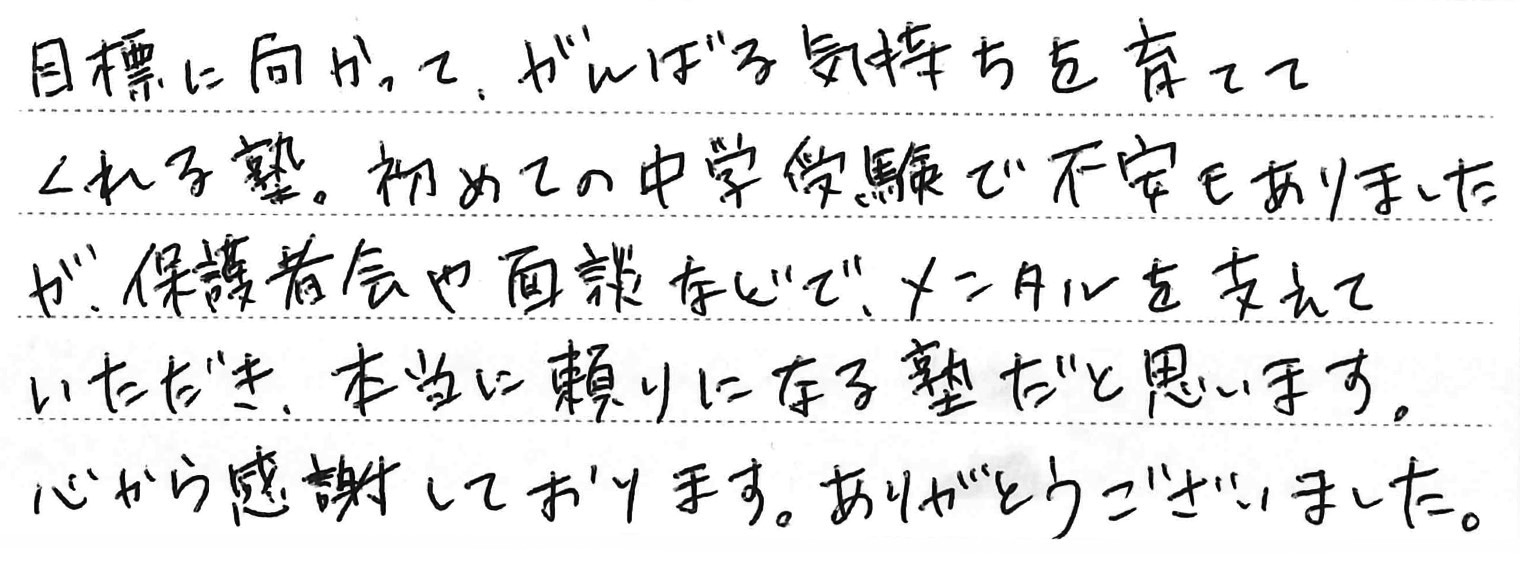 目標に向かって、がんばる気持ちを育てて
くれる塾。初めての中学受験で不安もありました
が、保護者会や面談などで、メンタルを支えて
いただき、本当に頼りになる塾だと思います。
心から感謝しております。ありがとうございました。